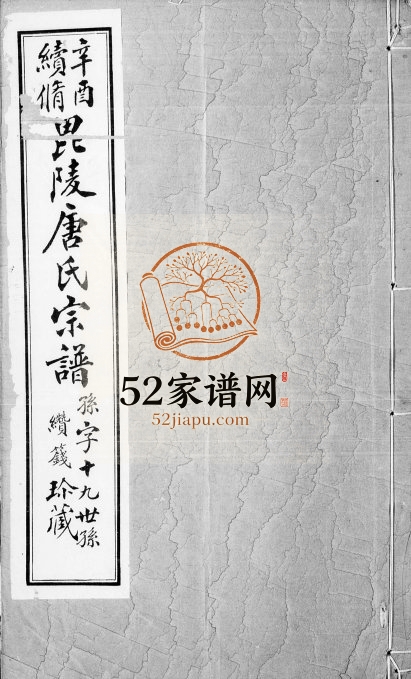 辛酉
續脩
毘陵唐氏宗譜
孫字十九世孫
纘籛珍藏
52家谱网
52jiapu.com